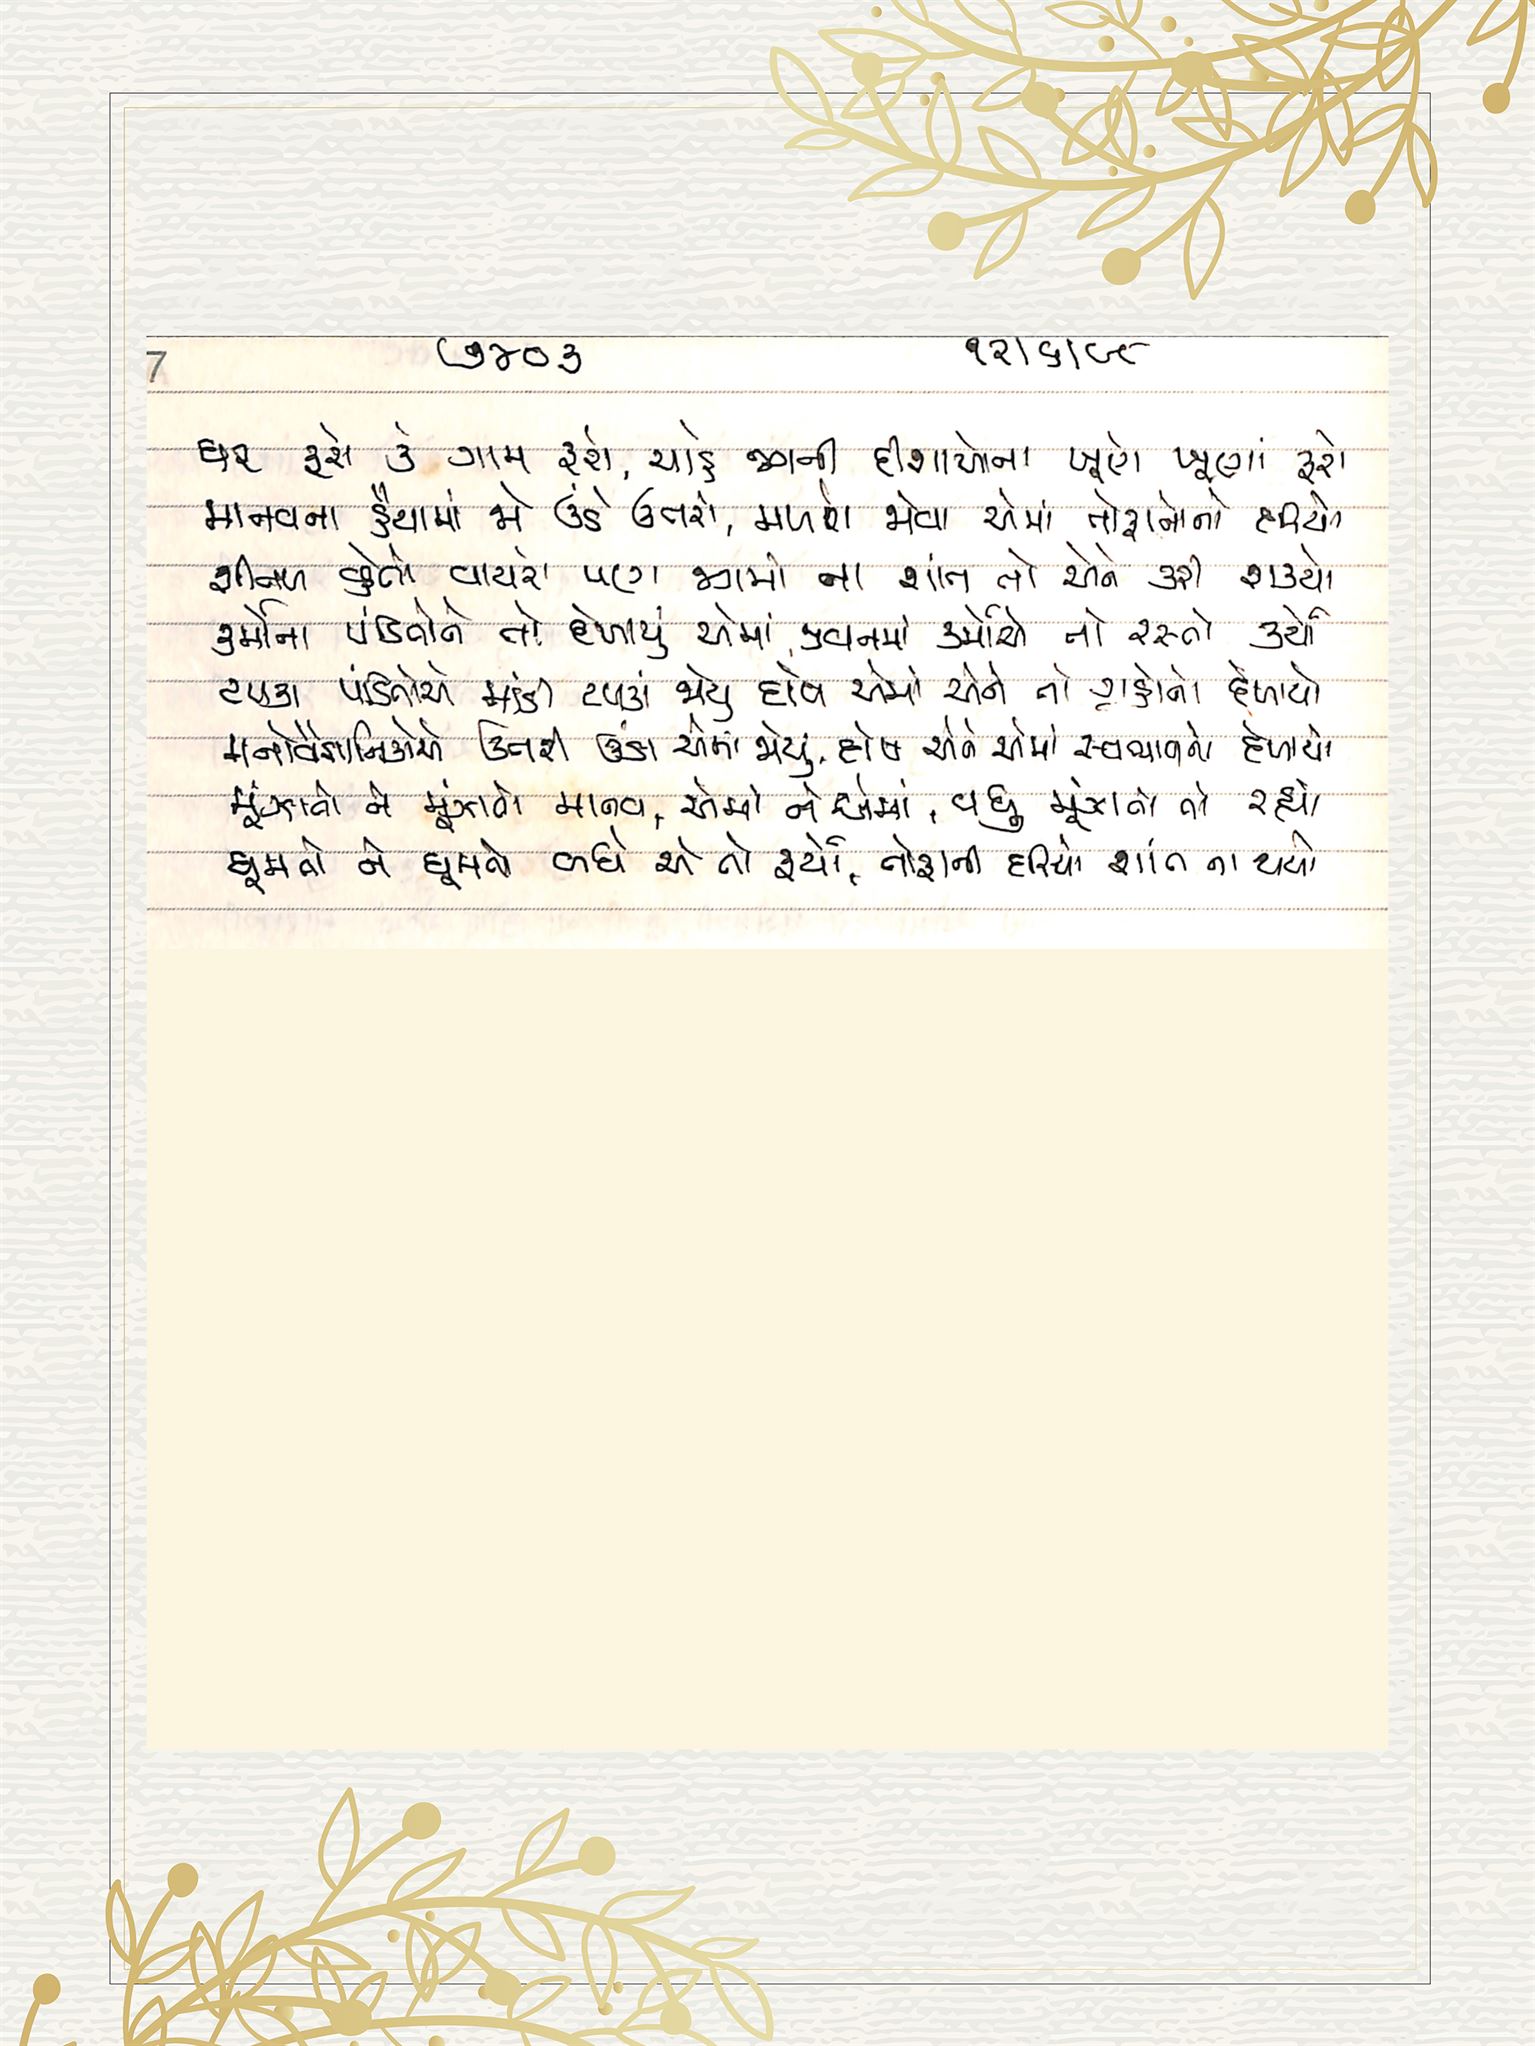 7 ૭૪૦૩ ૧૨/૬/૯૮
ઘર ફરો કે ગામ ફરો, ચાહે જગની દીશાઓના ખૂણે ખૂણાં ફરો
માનવના હૈયામાં જો ઉંડે ઉતરો, મળશે જોવા એમાં તોફાનોનો દરિયો
શીતળ વ્હેતો વાયરો પણ જગમાં ના શાંત તો એને કરી શક્યો
કર્મોના પંડિતોને તો દેખાયું એમાં, જીવનમાં કર્મોએ તો રસ્તો કર્યો
ટપકા પંડિતોએ માંડી ટપકાં જોયું દોષ એમાં એને તો ગ્રહોનો દેખાયો
મનોવૈજ્ઞાનિકોએ ઉતરી ઉંડા એમાં જોયું, દોષ એને એમાં સ્વભાવનો દેખાયો
મૂંઝાતો ને મૂંઝાતો માનવ, એમાં ને એમાં, વધુ મૂંઝાતો તો રહ્યો
ઘૂમતો ને ઘૂમતો બધે એ તો ફર્યો, તોફાની દરિયો શાંત ના થયો